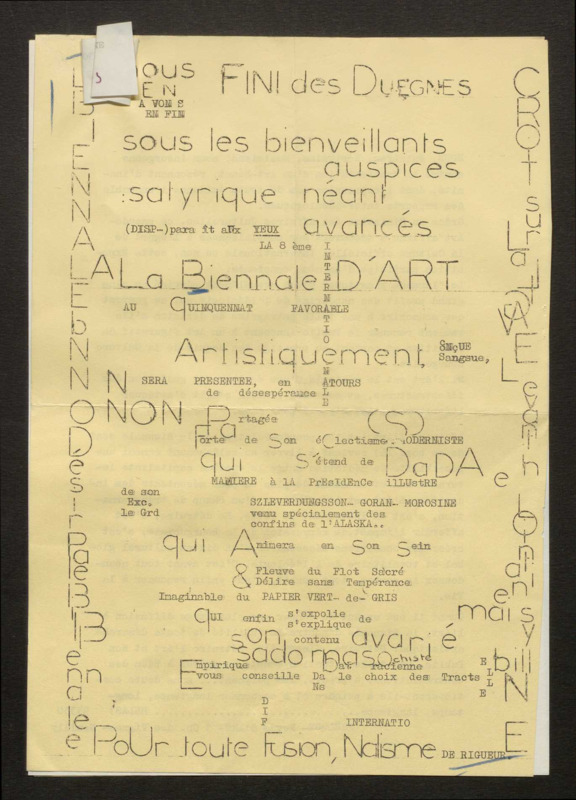 nous FINI des DUEGNES
EN
AVONS
ENFIN
sous les bienveillants
auspices
:satyrique néant
(DISP-)para ît aux YEUX avancés
LA 8 ème
INTERNATIONALE
A La Biennale D'ART
AU QUINQUENNAT FAVORABLE
Artistiquement,
Sangsue,
N SERA PRESENTEE, en ATOURS
de désespérance
NON Partagée (S)
Forte de Son éClectisme MODERNISTE
qui S'étend de DaDA
MANIERE à lA PrEsIdEnCe ilLUstRE
de son
Exc.
le Grd
SZLEVERDUEGSSON- GORAN- MOROSINE
venu spécialement des
confins de l'ALASKA..
qui Animera en Son Sein
& Fleuve du Flot Sacré
Délire sans Tempérance
Imaginable du PAPIER VERT- de- GRIS
qUI enfin s'expolie de
s'explique
son contenu avarié
sadomasochiste
Empirique Dat racienne
vous conseille Da le choix des Tracts
Ns
ELLE
DIF
INTERNATIO
PoUr toute Fusion, Nalisme DE RIGUEUR.